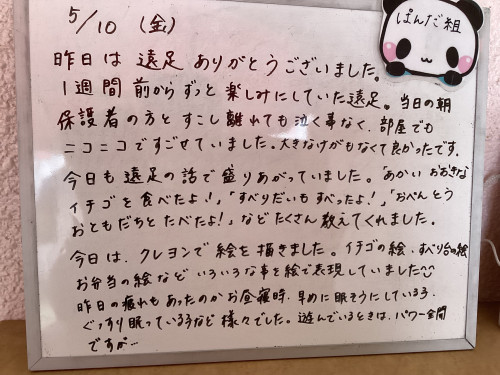 5/10 (金)
ぱんだ組
昨日は 遠足 ありがとうございました。
1週間前から ずっと 楽しみにしていた遠足。当日の朝
保護者の方と すこし離れても泣く事なく、部屋でも
ニコニコですごせていました。大きなけがもなくて良かったです。
今日も 遠足の話で盛りあがっていました。「あかい おおきな
イチゴ を食べたよ!」「すべりだいも すべったよ!」、「おべんとう
おともだちと たべたよ!」などたくさん 教えてくれました。
今日は、クレヨンで 絵を 描きました。イチゴの絵、すべり台の絵
お弁当の絵など いろいろな事を絵で表現していました
昨日の疲れも あったのか お昼寝時、早めに眠そうにしている子、
ぐっすり眠っている子など 様々でした。遊んでいるときは、パワー全開
ですが…